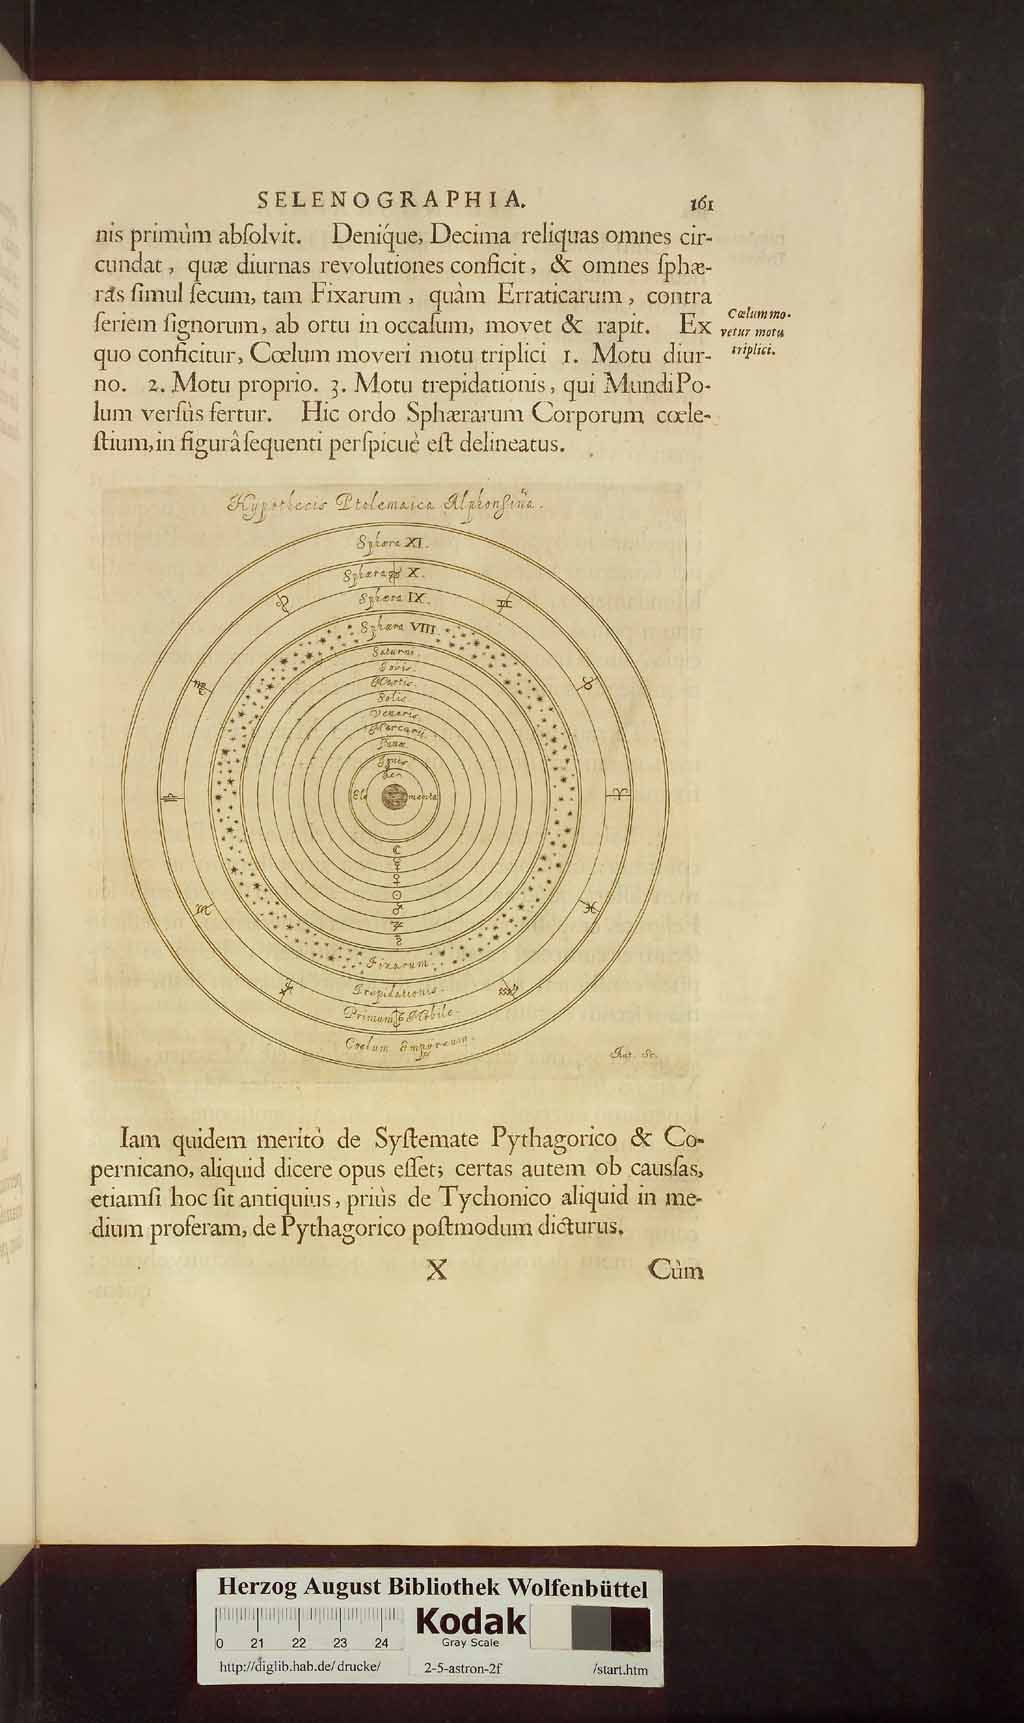 SELENOGRAPHIA. 161
nis primùm abſolvit. Denique, Decima reliquas omnes cir-
cundat, quæ diurnas revolutiones conficit, & omnes ſphæ-
ras ſimul ſecum, tam Fixarum, quàm Erraticarum, contra
ſeriem ſignorum, ab ortu in occaſum, movet & rapit. Ex
quo conficitur, Cœlum moveri motu triplici 1. Motu diur-
no. 2. Motu proprio. 3. Motu trepidationis, qui Mundi Po-
lum verſùs fertur. Hic ordo Sphærarum Corporum cœle-
ſtium, in figurâ ſequenti perſpicuè eſt delineatus.
Cœlum mo-
vetur motu
triplici.
Hypothesis Ptolemaica Alphonsina.
Sphæra XI.
Sphæra ♋ X.
Sphæra IX.
Sphæra VIII
♌ ♊
♍ ♉
♎ ♈
♏ ♓
♐ ♒
Saturni.
Jovis.
Martis.
Solis
Veneris.
Mercurii.
Lunæ
Ignis
Aer
Ele menta
☾
☿
♀
☉
♂
♃
♄
Fixarum.
Trepidationis.
Primum ♑ Mobile.
Coelum Empyreum.
Aut. Sc.
Iam quidem meritò de Syſtemate Pythagorico & Co-
pernicano, aliquid dicere opus eſſet; certas autem ob cauſſas,
etiamſi hoc ſit antiquius, priùs de Tychonico aliquid in me-
dium proferam, de Pythagorico poſtmodum dicturus.
X Cùm
Herzog August Bibliothek Wolfenbüttel
0 21 22 23 24
Kodak
Gray Scale
http://diglib.hab.de/drucke/ 2-5-astron-2f /start.htm